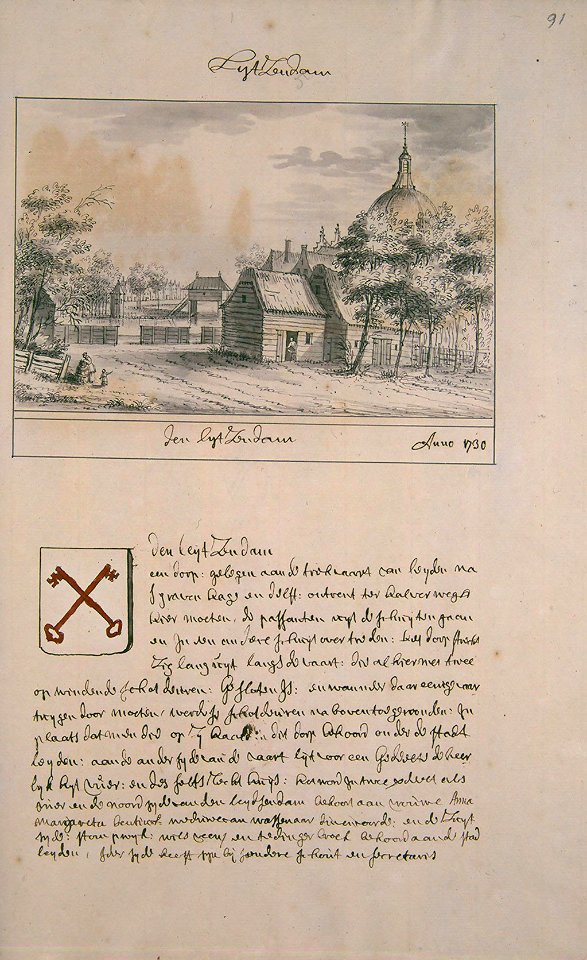 91
Leyt Zendam
den leyt Zendam
Anno 1730
den leyt Zendam
een dorp: gelegen aan de trekvaart van leyden na
s graven hage en delft: ontrent ter halver wegh
hier moeten, de passanten uyt de schuyten gaan
en in een andere schuyt over treden: het dorp strekt
Zig lang uyt langs de vaart: die alhier met twee
op windende schot deuren: gesloten is: en wanneer daar eenige vaar
tuygen door moeten, werden schotdeuren na boven toe gewonden: in
plaats dat men die op Zy haalt: dit dorp behoord onder de stadt
leyden: aan de ander zyde van de vaart lyt voor een gedeelte de heer
lyk hyt vuer: en des selfs recht huys: het word in twee gedeelt als
vuer en de noord zyde van den leydsendam behoort aan vrouwe Anna
Margareta bentinck weduwe van wassenaar duivenvoorde: en de Zuyt
zyde: stompwyck: wilsveen, en tedinger broek behoord aan de stad
leyden, ider zyde heeft zyn bysondere schout en secretaris